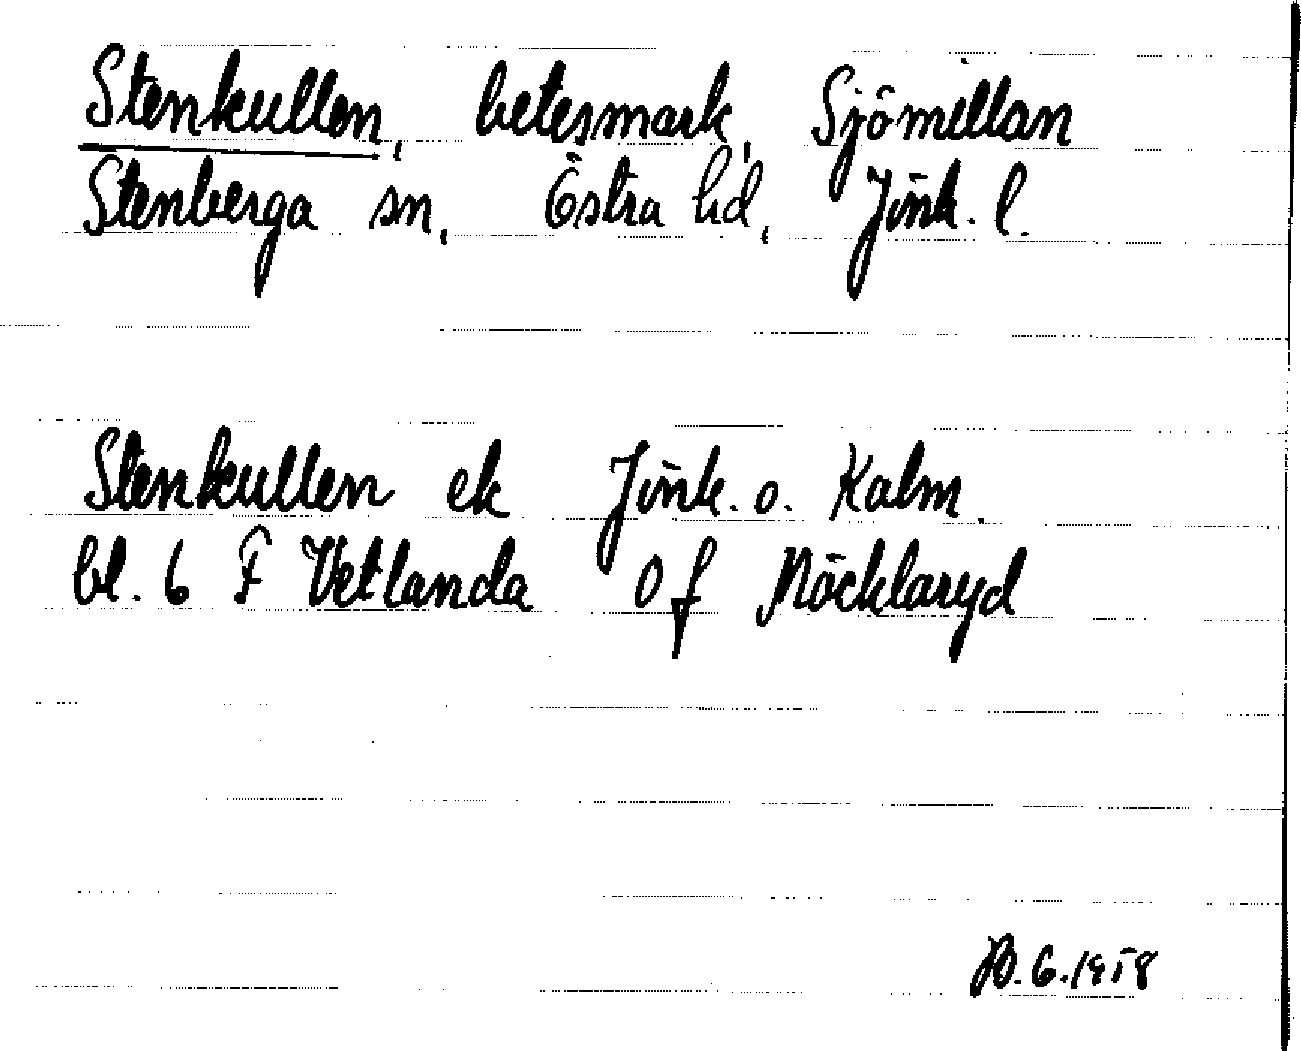 Stenkullen, betesmark, Sjömillan
Stenberga sn, Östra hd, Jönk. l.
Stenkullen ek Jönk. o. Kalm.
bl. 6 F Vetlanda Of Möcklaryd
6.1958